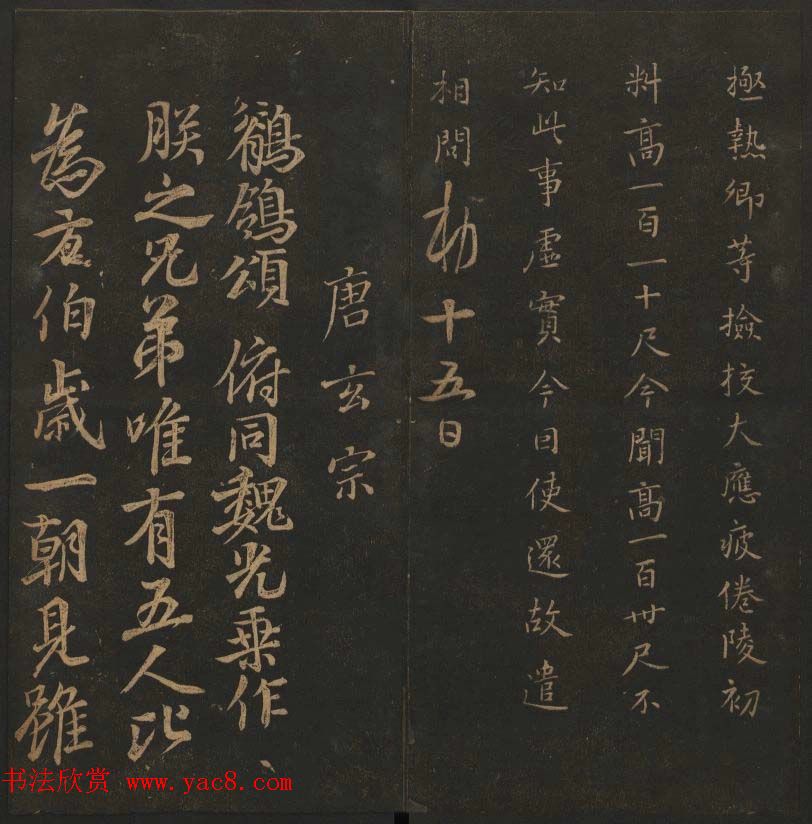 極熱卿等撿挍大應疲倦陵初
料高一百一十尺今聞高一百卅尺不
知此事虛實今因使還故遣
相問勅十五日
唐玄宗
鶺鴒頌 俯同魏光乗作
朕之兄弟唯有五人比
為方伯歲一朝見雖
书法欣赏 www.yac8.com